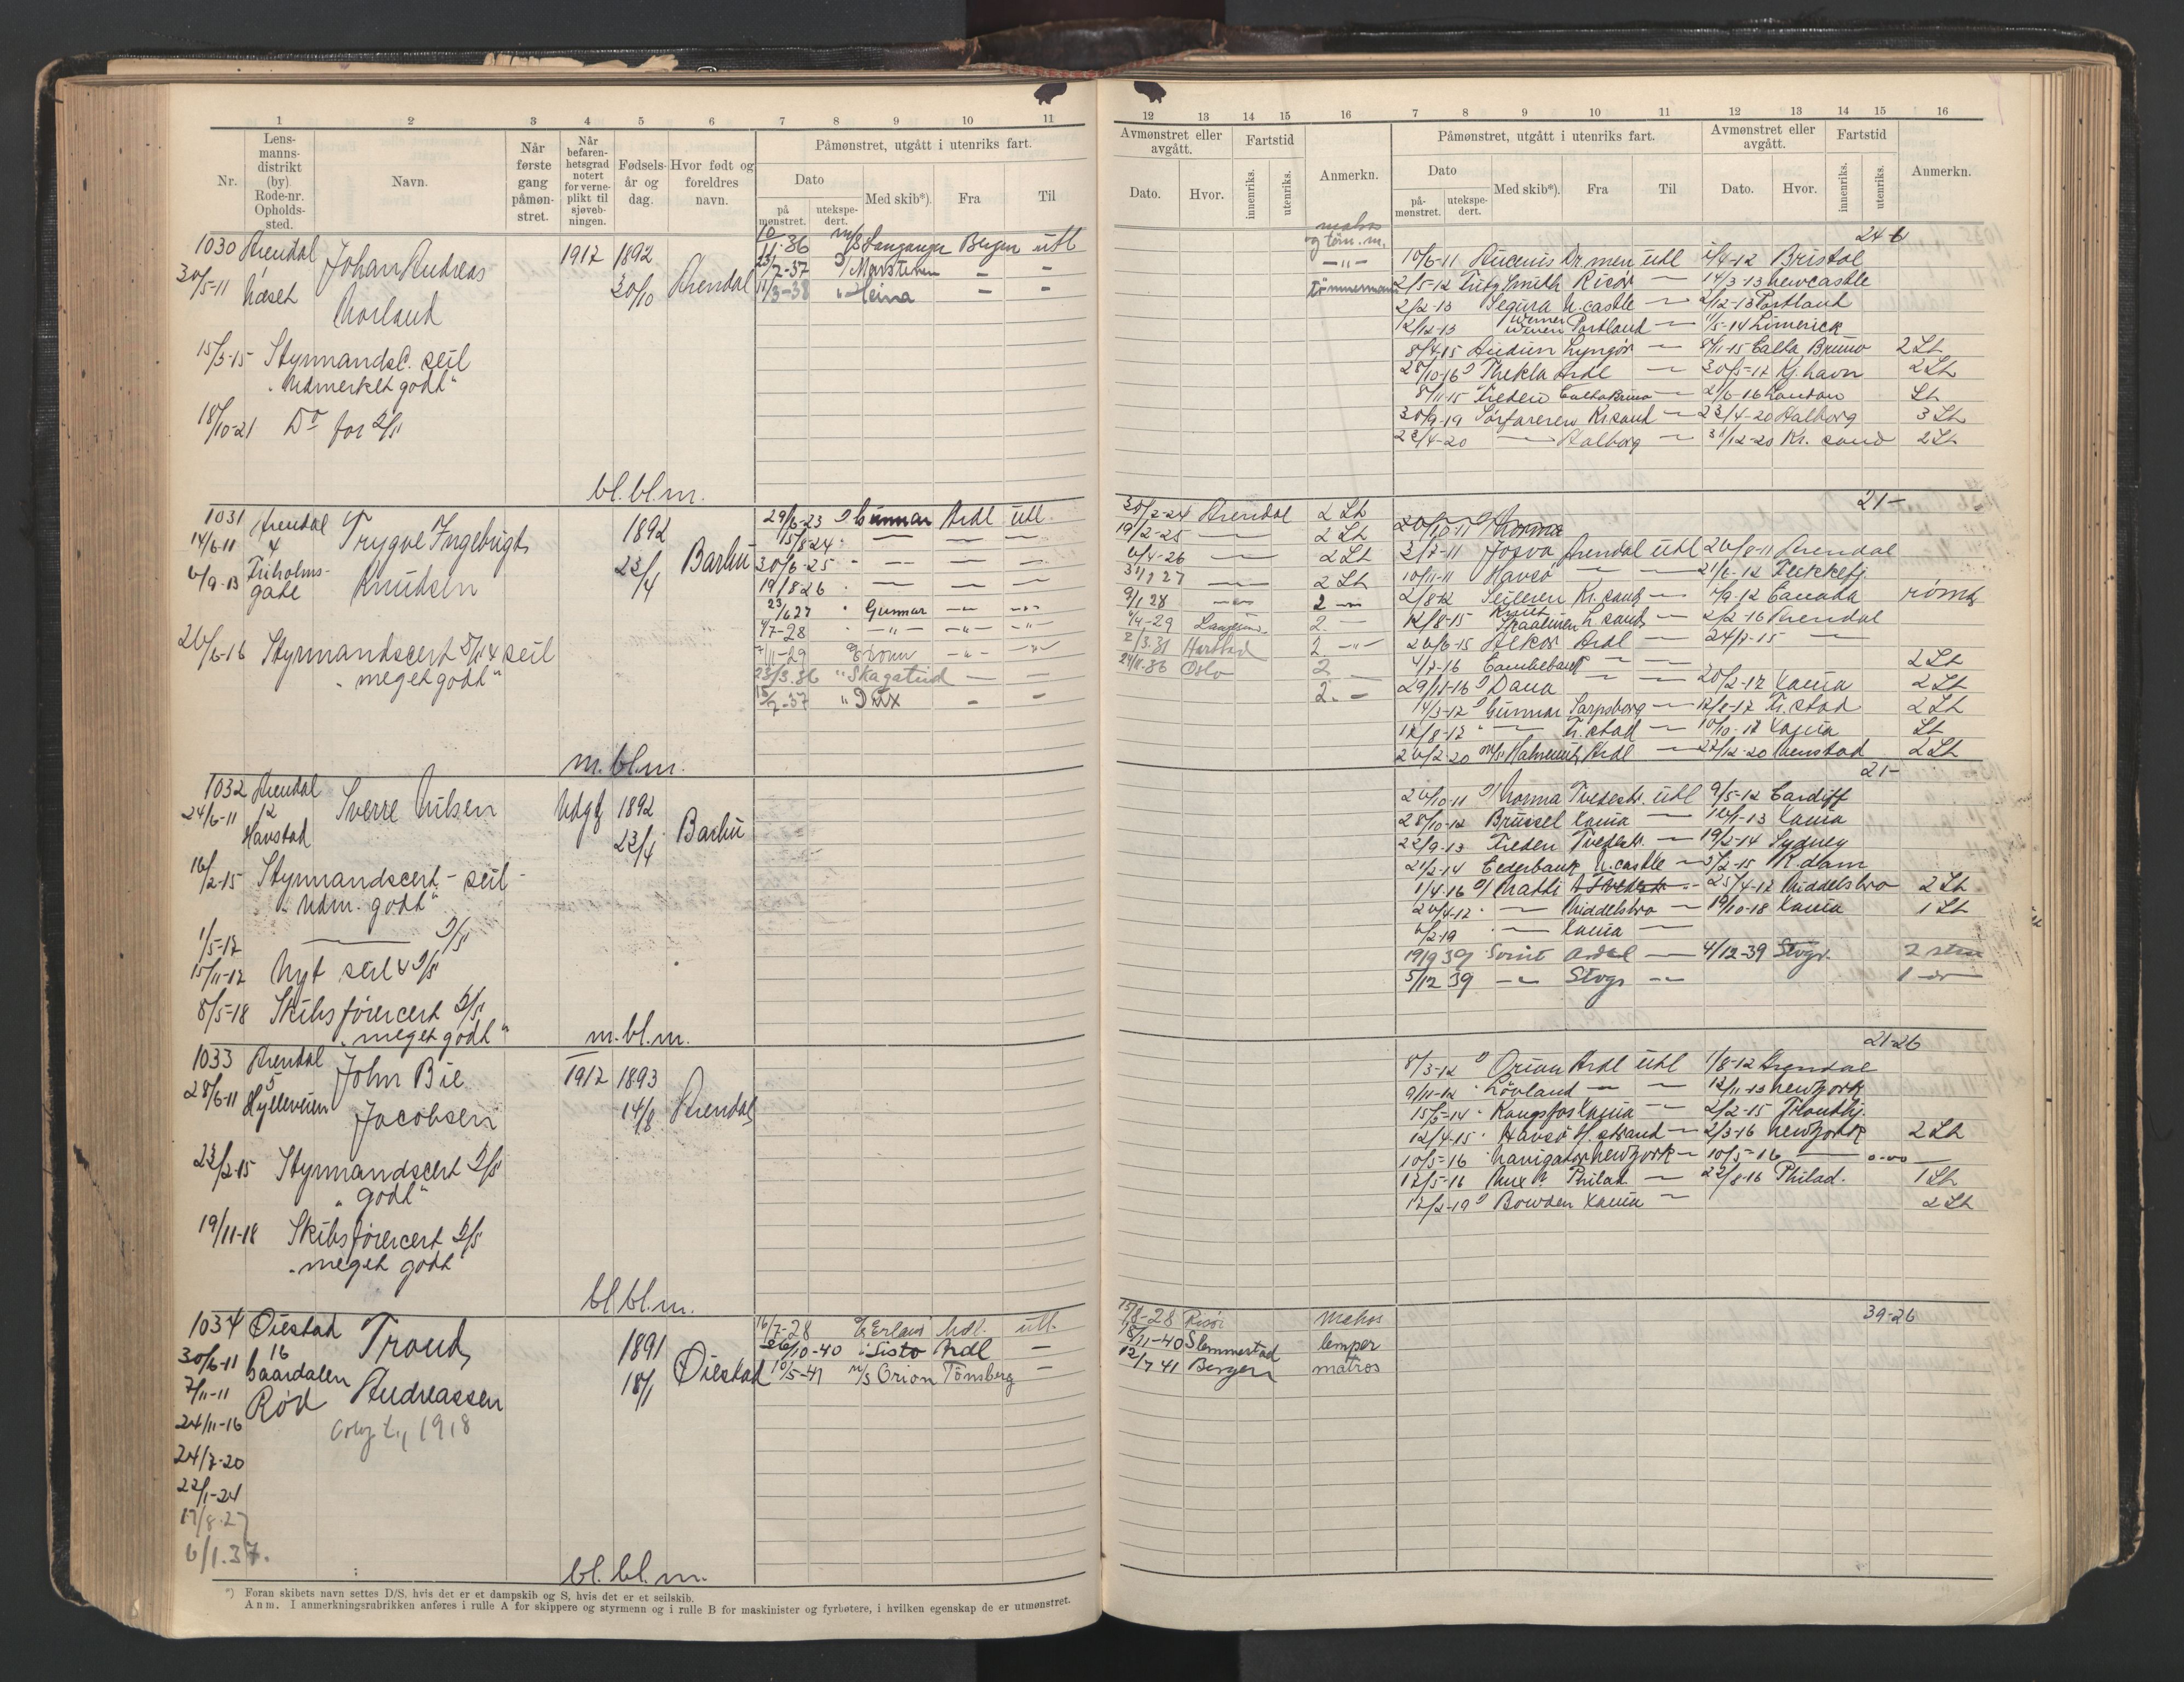 1 2 3 4 5 6 7 8 9 10 11
Nr. Lensmannsdistrikt (by) Rode-nr. Opholdssted. Navn. Når første gang påmønstret. Når befarenhetsgrad notert for verneplikt til sjøvebningen. Fødselsår og dag. Hvor født og foreldres navn. Påmønstret, utgått i utenriks fart.
Dato Med skib*). Fra Til
påmønstret. utekspedert.
1030 Arendal Johan Andreas 1917 1892
30/5-11 1 Næset Norland 30/10 Arendal
11-36 Bergen utl
/7-37 Marsteinen - -
/3-38 Heina - -
15/3-15 Styrmandsc. seil
"Udmerket godt"
18/10-21 Do for D/S
bl.bl.m.
1031 Arendal Trygve Ingebrigt 1892
14/6-11 4
6/9-13 Friholmsgate Knudsen 23/4 Barbu
26/6-16 Styrmandscert D/S & seil
"meget godt"
29/6-23 Gunnar Ardl utl.
15/8 24
30/6-25
19/8 26
23/6 27 Gunnar
4/7-28
/11-29
23/3.36 "Skagatind
15/7-37 "
m.bl.m.
1032 Arendal Sverre Nilsen Udgt 1892
24/6-11 12
Havstad 23/4 Barbu
16/2-15 Styrmandscert - seil -
"Udm. godt"
1/5-17 D/S
15/11-17 Nyt seil & D/S
8/5-18 Skibsførercert D/S
"meget godt"
m.bl.m.
1033 Arendal John Bie 1917 1893
28/6-11 5 Hylleveien Jacobsen 14/8 Arendal
23/2-15 Styrmandscert D/S
"godt"
19/11-18 Skibsførercert D/S
"meget godt"
bl.bl.m.
1034 Øiestad Trond 1891
30/6-11 16
7/11-11 Rød Andreassen 18/1 Øiestad
24/11-16 1918
24/7-20
22/1-24
17/8-27
6/1.37.
16/7-28 Erland Ardl. utl.
26/10-40 Listo Ardl -
10/5-41 M/S Orion Tønsberg -
bl.bl.m.
*) Foran skibets navn settes D/S, hvis det er et dampskib og S, hvis det er et seilskib.
Anm. I anmerkningsrubrikken anføres i rulle A for skippere og styrmenn og i rulle B for maskinister og fyrbøtere, i hvilken egenskap de er utmønstret.
12 13 14 15 16 7 8 9 10 11 12 13 14 15 16
Avmønstret eller avgått. Fartstid Anmerkn. Påmønstret, utgått i utenriks fart. Avmønstret eller avgått. Fartstid Anmerkn.
Dato. Hvor. innenriks. utenriks. Dato Med skib*). Fra Til Dato. Hvor. innenriks. utenriks.
påmønstret. utekspedert.
matros
og tøm.m.
-"-
tømmermann
24-6
10/6-11 Drmen utl /4-12 Bristol
2/5-12 Fritz Smith Risør - 14/3-13 Newcastle
2/2-13 Segura N.castle - 2/12-13 Portland
12/12-13 Portland - 11/5-14 Limerick
8/4-15 Audun Lyngør - 8/11-15 Calta Bruno 2 St
28/10-16 Thekla Ardl - 30/5-17 Kj.havn 2 St
8/11-15 Freden - 2/6-16 London St
30/9-19 Sørfareren Kr.sand - 23/4-20 Aalborg 3 St
23/4-20 - Aalborg - 31/12-20 Kr. sand 2 St
21-
30/2-24 Arendal 2 St
19/2-25 - 2 St
6/4-26 - 2 St
31/1 27 - 2 St
9/1 28 - 2 -
4/4-29 2 -
2/3.31 Harstad 2 -"-
24/11-36 Oslo 2 -
2. -
26/10-11 Norma
3/7-11 Josva Arendal utl 26/8-11 Arendal
10/11-11 Havsø - - 21/6-12 Flekkefj.
2/8-12 Seileren Kr.sand - 7/9-12 Canada rømt
12/8-15 - 2/2-16 Arendal
26/6-15 Alkor Ardl - 24/7-15 -
4/7-16 - - 2 St
29/11-16 Dana - - 20/2-17 Xania 2 St
14/3-17 Gunnar Sarpsborg - 17/8-17 Fr.stad 2 St
17/8-17 - Fr.stad - 10/10-17 Xania St
26/2-20 M/S Ardl - 22/12-20 2 St
21-
26/10-11 Norma Tvedestr. utl 9/5-12 Cardiff
28/10-12 Brüssel Xania - 16/1-13 Xania
22/9-13 Freden Tvedestr. - 19/2-14 Sydney
21/2-14 Cederbank N.castle - 3/2-15 R.dam
1/4-16 - 25/4-17 Middelsbro 2 St
26/4-17 - Middelsbro - 19/10-18 Xania 1 St
6/2-19 - Xania -
19/9 39 Svint Ardal - 4/12-39 Stvgr. 2 strm
5/12 39 - Stvgr - 1 -
21-26
8/3-12 Orion Ardl utl 1/8-12 Arendal
9/11-12 Løvland - - 12/11-13 New York
15/5-14 Kongsfos Xania - 2/2-15 Trondhj.
12/4-15 Havsø H.strand - 2/3-16 New York 2 St
10/5-16 Navigator New York - 10/5-16 -
17/5-16 Philad - 22/8-16 Philad. 1 St
17/2-19 Bowden Xania - 2 St
39-26
15/8-28 Risør Matros
18/11-40 Slemmestad lemper
12/7 41 Bergen matros